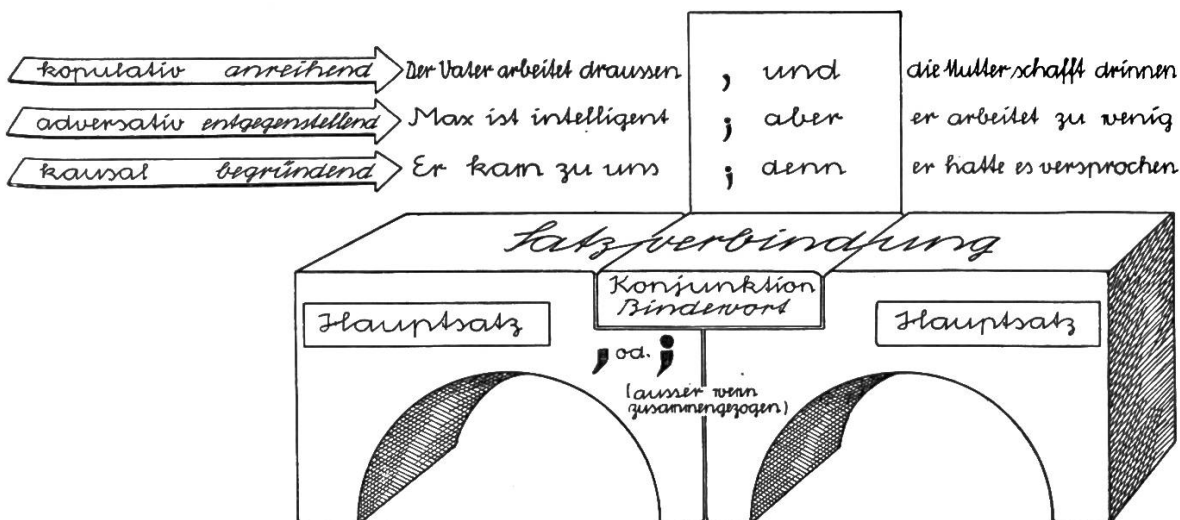 kopulativ anreihend Der Vater arbeitet draussen , und die Mutter schafft drinnen
adversativ entgegenstellend Max ist intelligent ; aber er arbeitet zu wenig
kausal begründend Er kam zu uns ; denn er hatte es versprochen
Satzverbindung
Konjunktion
Bindewort
Hauptsatz
Hauptsatz
, od. ;
(ausser wenn
zusammengezogen)